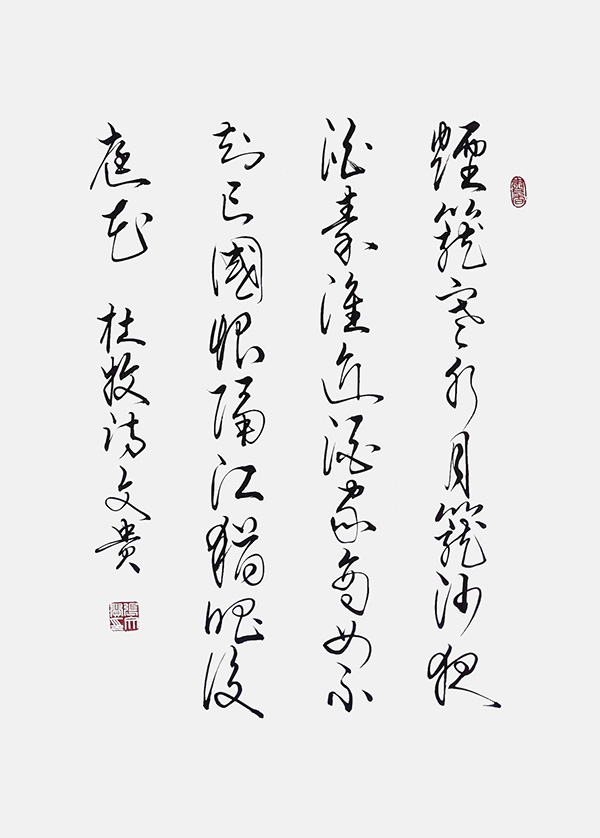 煙籠寒水月籠沙夜
泊秦淮近酒家商女不
知亡國恨隔江猶唱後
庭花 杜牧诗文贵